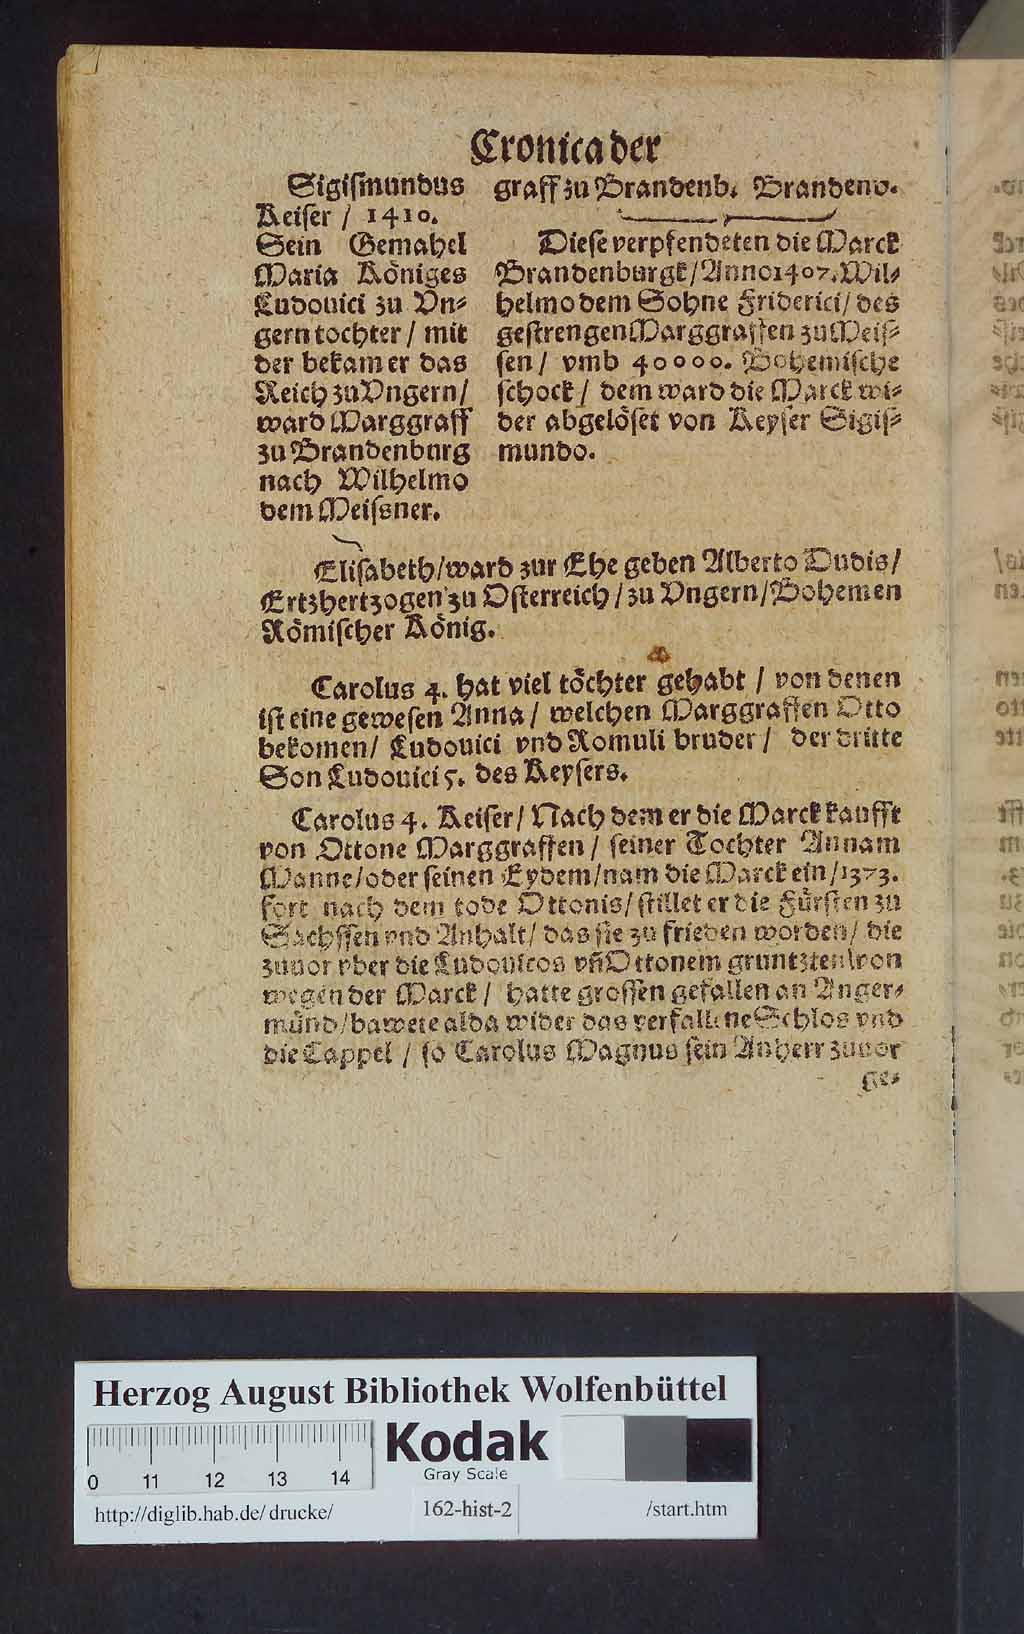 Cronica der
Sigiſmundus
Keiſer / 1410.
Sein Gemahel
Maria Königes
Ludouici zu Vn⸗
gern tochter / mit
der bekam er das
Reich zu Vngern/
ward Marggraff
zu Brandenburg
nach Wilhelmo
dem Meiſsner.
graff zu Brandenb. Brandenb.
Dieſe verpfendeten die Marck
Brandenburgk/Anno 1407. Wil⸗
helmo dem Sohne Friderici/ des
geſtrengen Marggraffen zu Meiſ⸗
ſen / vmb 40000. Bohemiſche
ſchock / dem ward die Marck wi⸗
der abgelöſet von Keyſer Sigiſ⸗
mundo.
Eliſabeth/ward zur Ehe geben Alberto Dudis/
Ertzhertzogen zu Oſterreich/zu Vngern/Bohemen
Römiſcher König.
Carolus 4. hat viel töchter gehabt / von denen
iſt eine geweſen Anna / welchen Marggraffen Otto
bekomen/ Ludouici vnd Romuli bruder / der dritte
Son Ludouici 5. des Keyſers.
Carolus 4. Keiſer/ Nach dem er die Marck kaufft
von Ottone Marggraffen / ſeiner Tochter Annam
Manne/oder ſeinen Eydem/nam die Marck ein/1373.
fort nach dem tode Ottonis/ ſtillet er die Fürſten zu
Sachſſen vnd Anhalt/ das ſie zu frieden worden/ die
zuuor vber die Ludouicos vñ Ottonem gruntzten von
wegen der Marck / hatte groſſen gefallen an Anger⸗
münd/bawete alda wider das verfallene Schlos vnd
die Cappel / ſo Carolus Magnus ſein Anherr zuuor
ge⸗
Herzog August Bibliothek Wolfenbüttel
Kodak
Gray Scale
0 11 12 13 14
http://diglib.hab.de/drucke/ 162-hist-2 /start.htm